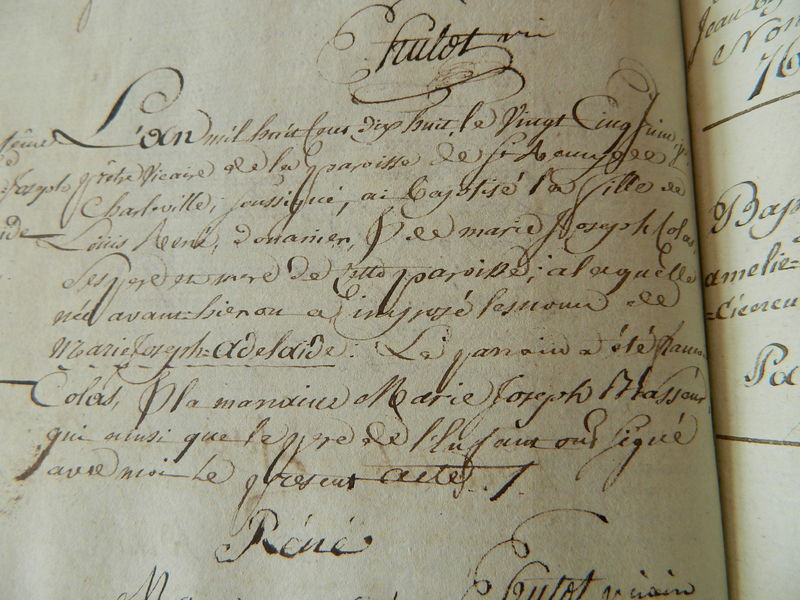 Chulot vic
L'an mil huit cens dix huit, le Vingt Cinq Juin, je
prêtre Vicaire de la paroisse de St Remy de
Charleville, soussigné, ai baptisé la fille de
Louis René, douanier, & de marie Joseph Colas,
ses pere et mere de Cette paroisse; a laquelle
née avant-hier on a imposé les noms de
Marie Joseph=adelaide. Le parrain a été
Colas, & la maraine Marie Joseph Brasseur
qui ainsi que le pere de l'Enfant ont signé
avec moi le present acte.
René
Chulot vicair
Joseph
Jean
Non
76
Bap
amelie=
Pa